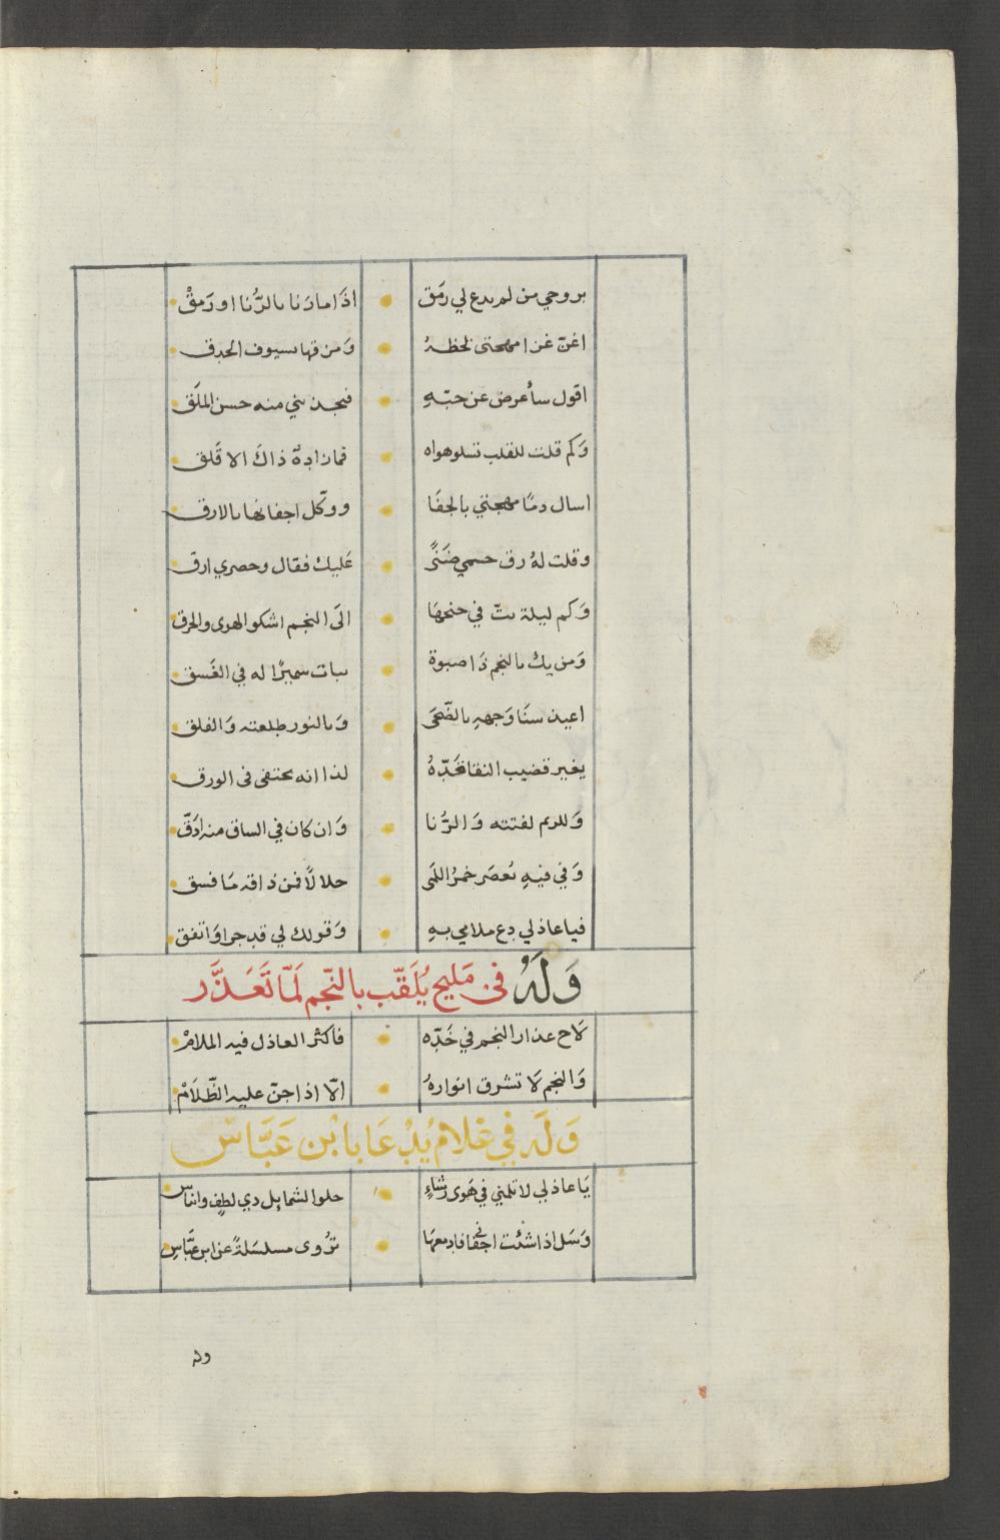 بروحي من لم يدع لي رمَق اذا ما رَنا بالرُّنا او رَمقْ
اغنّ غزا مهجتى لحظهُ وَمزقها بسيوف الحدق
اقول سأعرض عن حبّهِ فيجذبني منه حسن الملَق
وَكم قلت للقلب تسلو هواه فما زادهُ ذاكَ الا قَلق
اسال دمًا مهجتي بالجفَا ووكّل اجفانها بالارق
وقلت لهُ رق جسمي ضنًى عَليك فقال وخصري ارق
وَكم ليلة بتّ في جنحهَا الَى النجم اشكو الهوى والحرق
وَمن يك بالنجم ذَا صبوة يبات سميرًا له في الغَسق
اعيذ سنَا وَجههِ بالضّحَى وَبالنور طلعته وَالفلق
يغير قضيب النقا قدّهُ لذا انه يختفى فى الورق
وَللريم لفتته وَالرُّنا وَان كان في الساق منه ادَقّ
وَفي فيهِ تُعصَر خمرُ اللمَى حلالًا فمن ذاقه مَا فسق
فيا عاذلي دع ملامي بهِ وَقولك لي قد جرا وَاتفق
وَلَهُ فى مَليح يُلَقّب بالنّجم لَمّا تَعَذَّر
لَاح عذار النجم في خَدّه فاكثر العاذل فيه الملامْ
وَالنجم لَا تشرق انوارهُ الّا اذا جنّ عليه الظّلَامْ
وَلَه في غلام يُدْعَا بابْن عَبَّاس
يَا عاذلي لا تلمني في هَوى رشاءٍ حلو الشمايل ذي لطفٍ وايناس
وَسَل اذا شئت اجفانى فادمعهَا تُروى مسلسَلةً عن ابن عبَّاسِ
وله